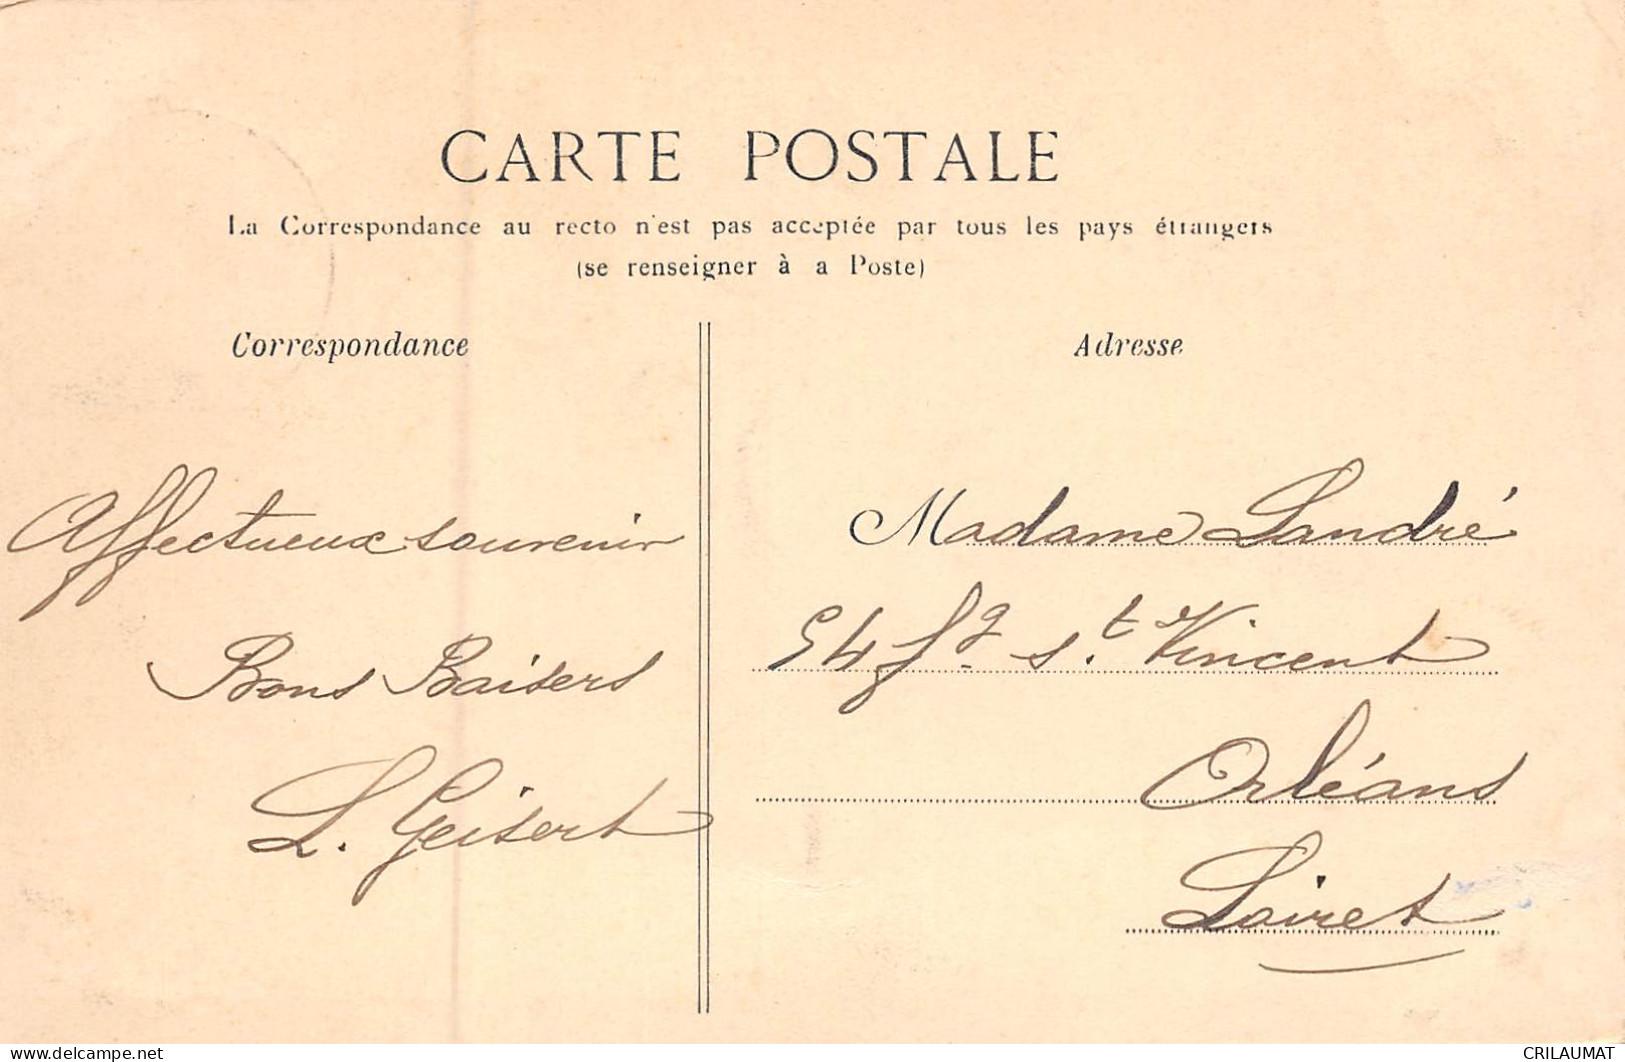 CARTE POSTALE
La Correspondance au recto n'est pas acceptée par tous les pays étrangers
(se renseigner à a Poste)
Correspondance
Affectueux souvenir
Bons Baisers
L. Geisert
Adresse
Madame Landré
54 fg. St. Vincent
Orléans
Loiret
www.delcampe.net
CRILAUMAT